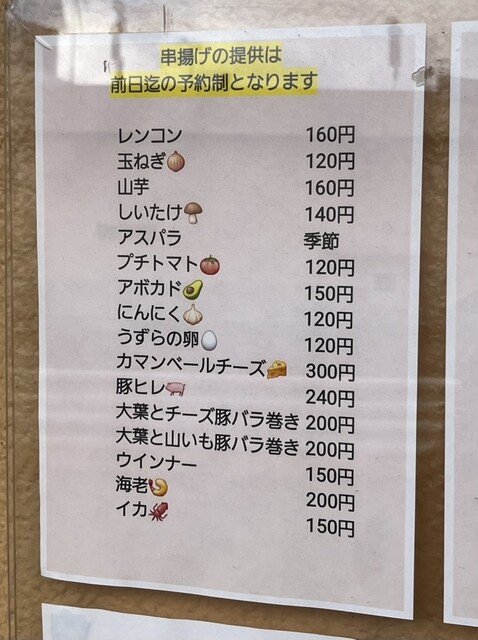 串揚げの提供は
前日迄の予約制となります
レンコン 160円
玉ねぎ🧅 120円
山芋 160円
しいたけ🍄 140円
アスパラ 季節
プチトマト🍅 120円
アボカド🥑 150円
にんにく🧄 120円
うずらの卵🥚 120円
カマンベールチーズ🧀 300円
豚ヒレ🐖 240円
大葉とチーズ豚バラ巻き 200円
大葉と山いも豚バラ巻き 200円
ウインナー 150円
海老🍤 200円
イカ🦑 150円